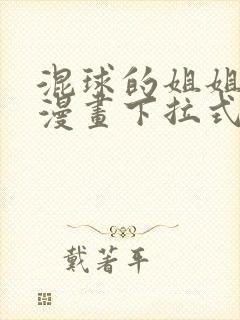 混球的姐姐
漫畫下拉式
戴著平